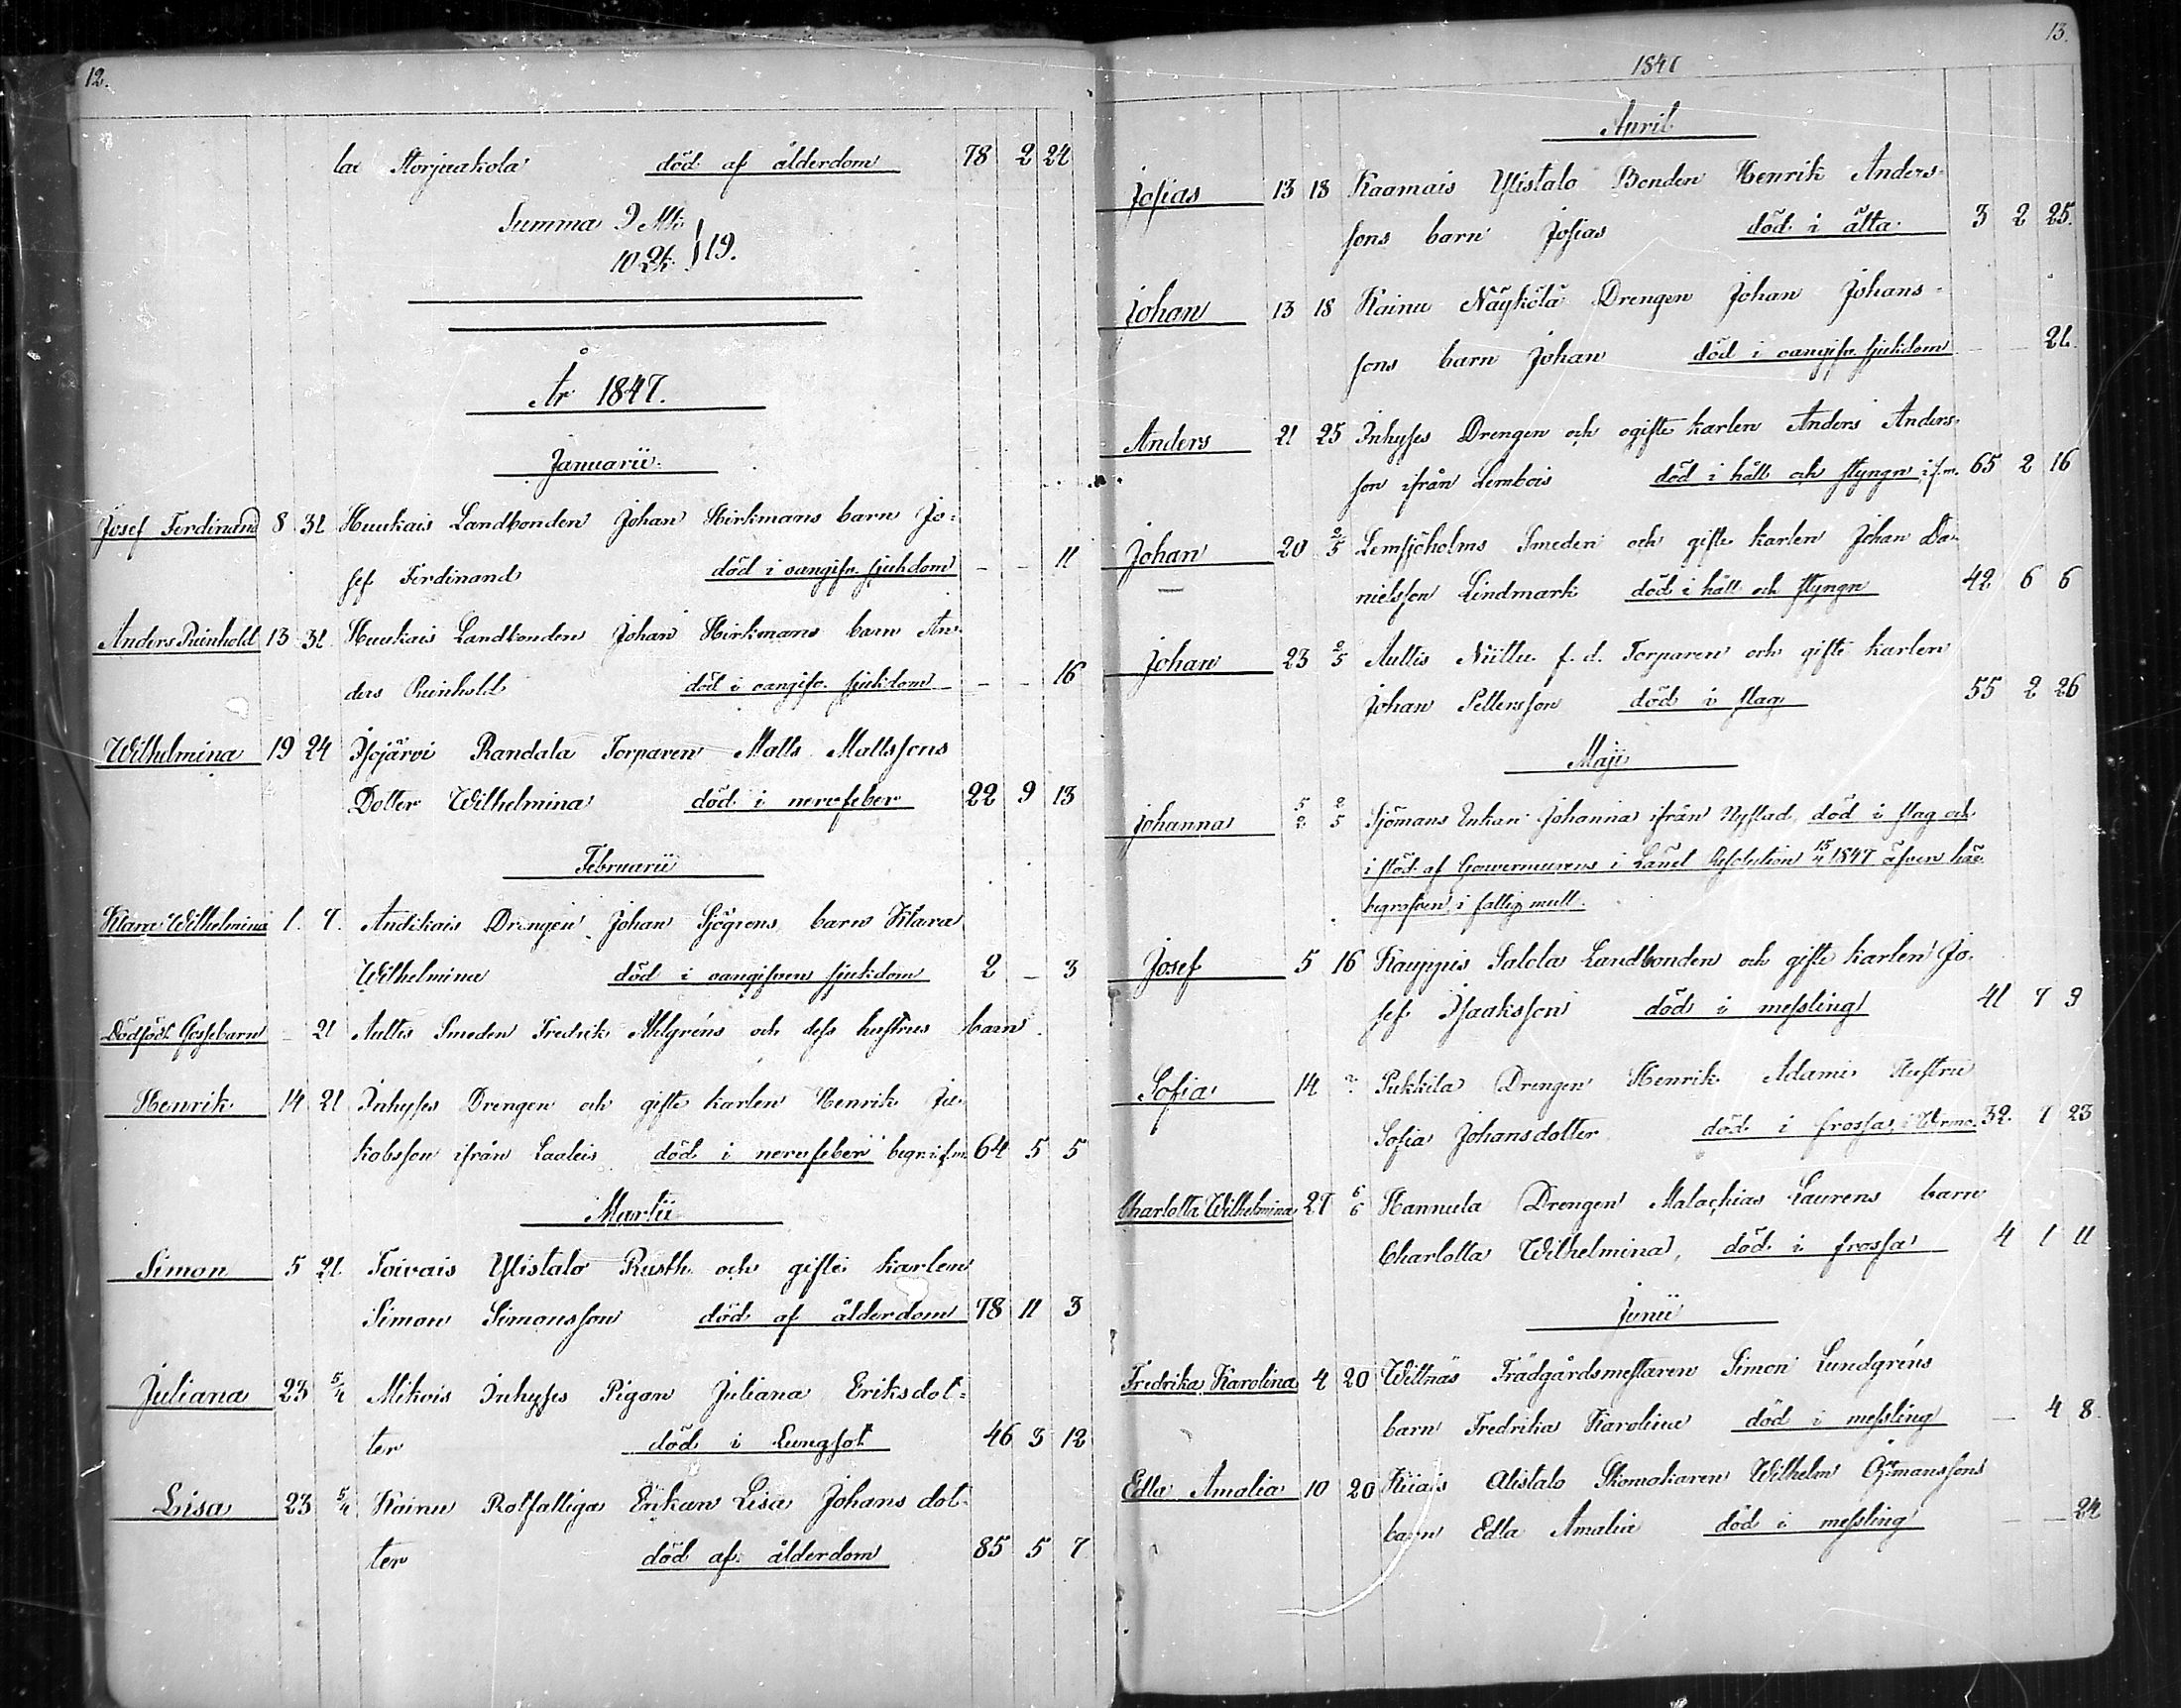 12.
la Storjaakola död af ålderdom 78 2 24
Summa 9 Mk
10 Qk } 19.
År 1847.
Januarii.
Josef Ferdinand 8 31 Huukais Landbonden Johan Stirkmans barn Jo-
sef Ferdinand död i oangifn. sjukdom - - 11
Anders Reinhold 13 31 Huukais Landbonden Johan Stirkmans barn An-
ders Reinhold död i oangifn. sjukdom - - 16
Wilhelmina 19 24 Isojärvi Randala Torparen Matts Mattssons
Dotter Wilhelmina död i nervfeber 22 9 13
Februarii
Klara Wilhelmina 1. 7. Andikais Drengen Johan Sjögrens barn Klara
Wilhelmina död i oangifven sjukdom 2 - 3
Dödfödt Gossebarn - 21 Aultis Smeden Fredrik Ahlgréns och dess hustrus barn.
Henrik 14 21 Inhyses Drengen och gifte karlen Henrik Ja-
kobsson ifrån Laaleis död i nervfeber begr. i f.m. 64 5 5
Martii
Simon 5 21. Toivais Ylistalo Rusth. och gifte karlen
Simon Simonsson död af ålderdom 78 11 3
Juliana 23 5/4 Mikois Inhyses Pigan Juliana Eriksdot-
ter död i Lungsot 46 3 12
Lisa 23 5/4 Kainu Rotfattiga Enkan Lisa Johansdot-
ter död af ålderdom 85 5 7
13.
1847
April
Josias 13 18 Kaamais Ylistalo Bonden Henrik Anders-
sons barn Josias död i älta 3 2 25.
Johan 13 18 Kainu Näykölä Drengen Johan Johans-
sons barn Johan död i oangifn. sjukdom - - 21.
Anders 21 25 Inhyses Drengen och ogifte karlen Anders Anders-
son ifrån Lembois död i håll och styngn i f.m. 65 2 16
Johan 20 2/5 Lemsjöholms Smeden och gifte karlen Johan Da-
nielsson Lindmark död i håll och styngn 42 6 6
Johan 23 2/5 Aultis Niittu f. d. Torparen och gifte karlen
Johan Pettersson död i slag 55 2 26
Maji
Johanna 5/2 2/5 Sjömans Enkan Johanna ifrån Nystad, död i slag och
i stöd af Gouverneurens i Länet Resolution 15/4 1847 äfven här
begrafven i fattig mull.
Josef 5 16 Kauppis Salola Landbonden och gifte karlen Jo-
sef Isaaksson död i messling 41 7 9
Sofia 14 ? Pukkila Drengen Henrik Adams Hustru
Sofia Johansdotter död i frossa, i Wirmo. 32. 7 23
Charlotta Wilhelmina 27 6/6 Hannula Drengen Malachias Laurens barn
Charlotta Wilhelmina, död i frossa 4 1 11
Junii
Fredrika Karolina 4 20 Willnäs Trädgårdsmestaren Simon Lundgréns
barn Fredrika Karolina död i messling - 4 8.
Edla Amalia 10 20 Kiiais Alistalo Skomakaren Wilhelm
barn Edla Amalia död i messling - - 24